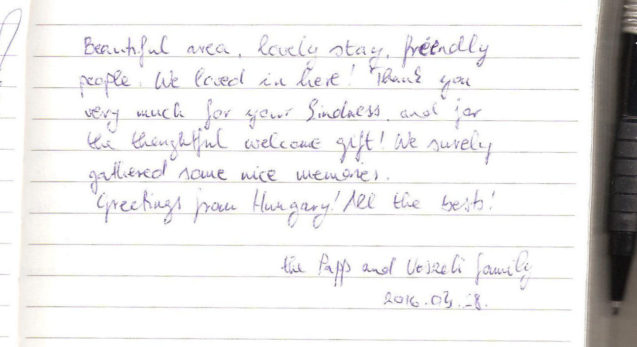 Beautiful area, lovely stay, friendly
people. We loved in here! Thank you
very much for your kindness and for
the thoughtful welcome gift! We surely
gathered some nice memories.
Greetings from Hungary! All the best!
the Papp and family
2016.03.28.